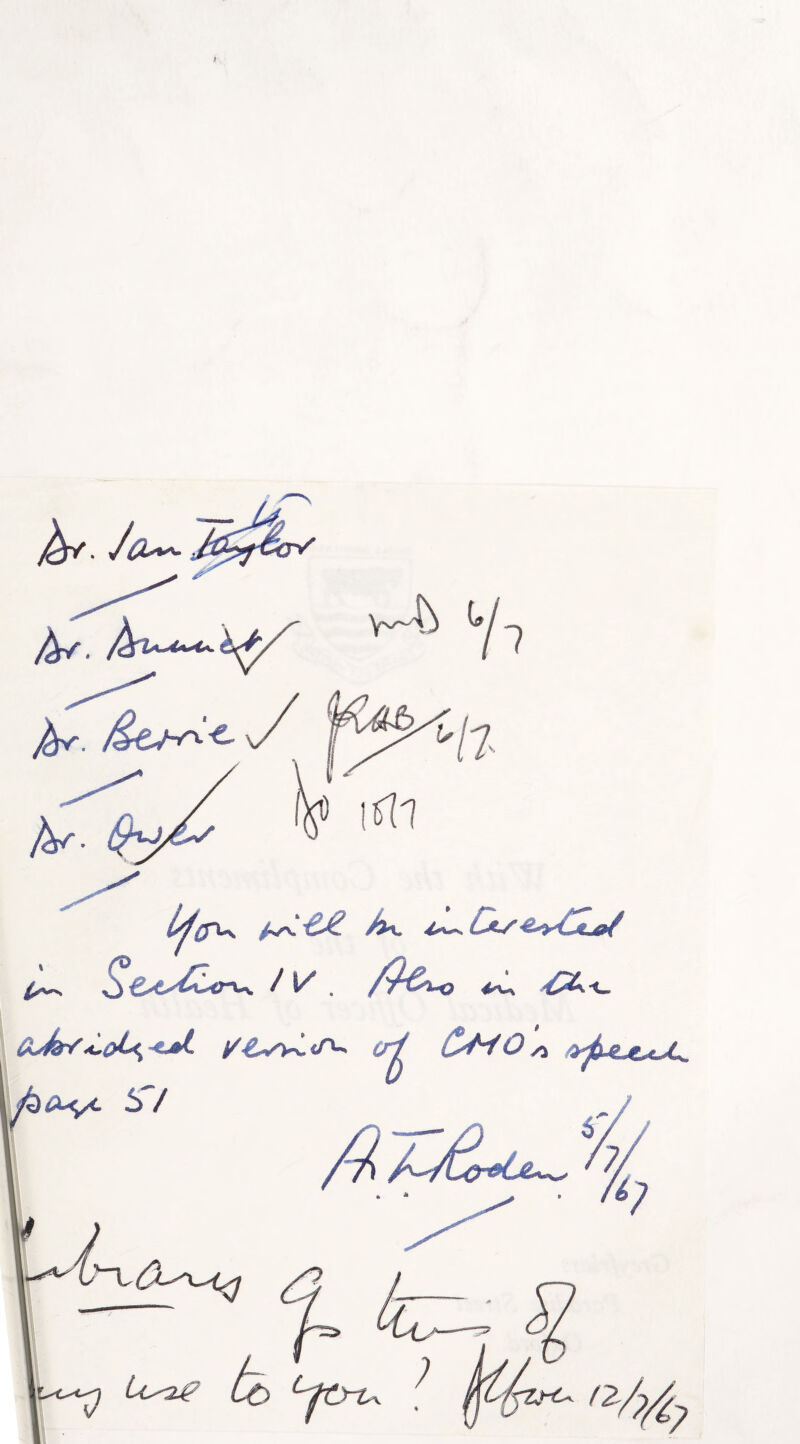 Dr. Ian Taylor
Dr. Dunnet MD 6/7
Dr. Berrie RAB 6/7.
Dr. Ower DO 10/7
You will be interested
in Section IV. Also in the
abridged version of CMO's speech
page 51
A.T. Roden 5/7/67
Is this of
any use to you? 12/7/67
With the Compliments
of the
Medical Officer of Health
Greyfriars
Paradise Street
Oxford